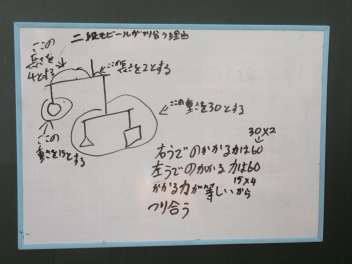 二段モビールがつり合う理由
ここの
長さを
4とする
ここの長さを2とする
この重さを30とする
ここの
重さを15とする
30×2
右うでのかかる力は60
左うでのかかる力は60
15×4
かかる力が等しいから
つり合う